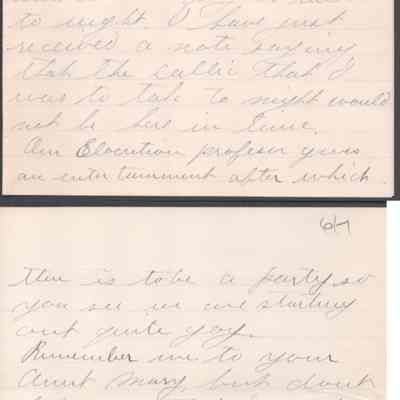 to night. I have just
received a note saying
that the callic that I
was to take to night would
not be here in time.
Our Elocution profesor gives
an entertainment after which
6/7
there is to be a party so
you see we are starting
out quite gay.
Remember me to your
Aunt Mary but dont